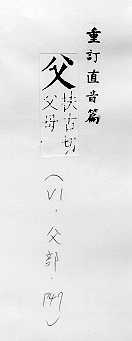 重訂直音篇
父
扶古切
父母
(VI・父部・